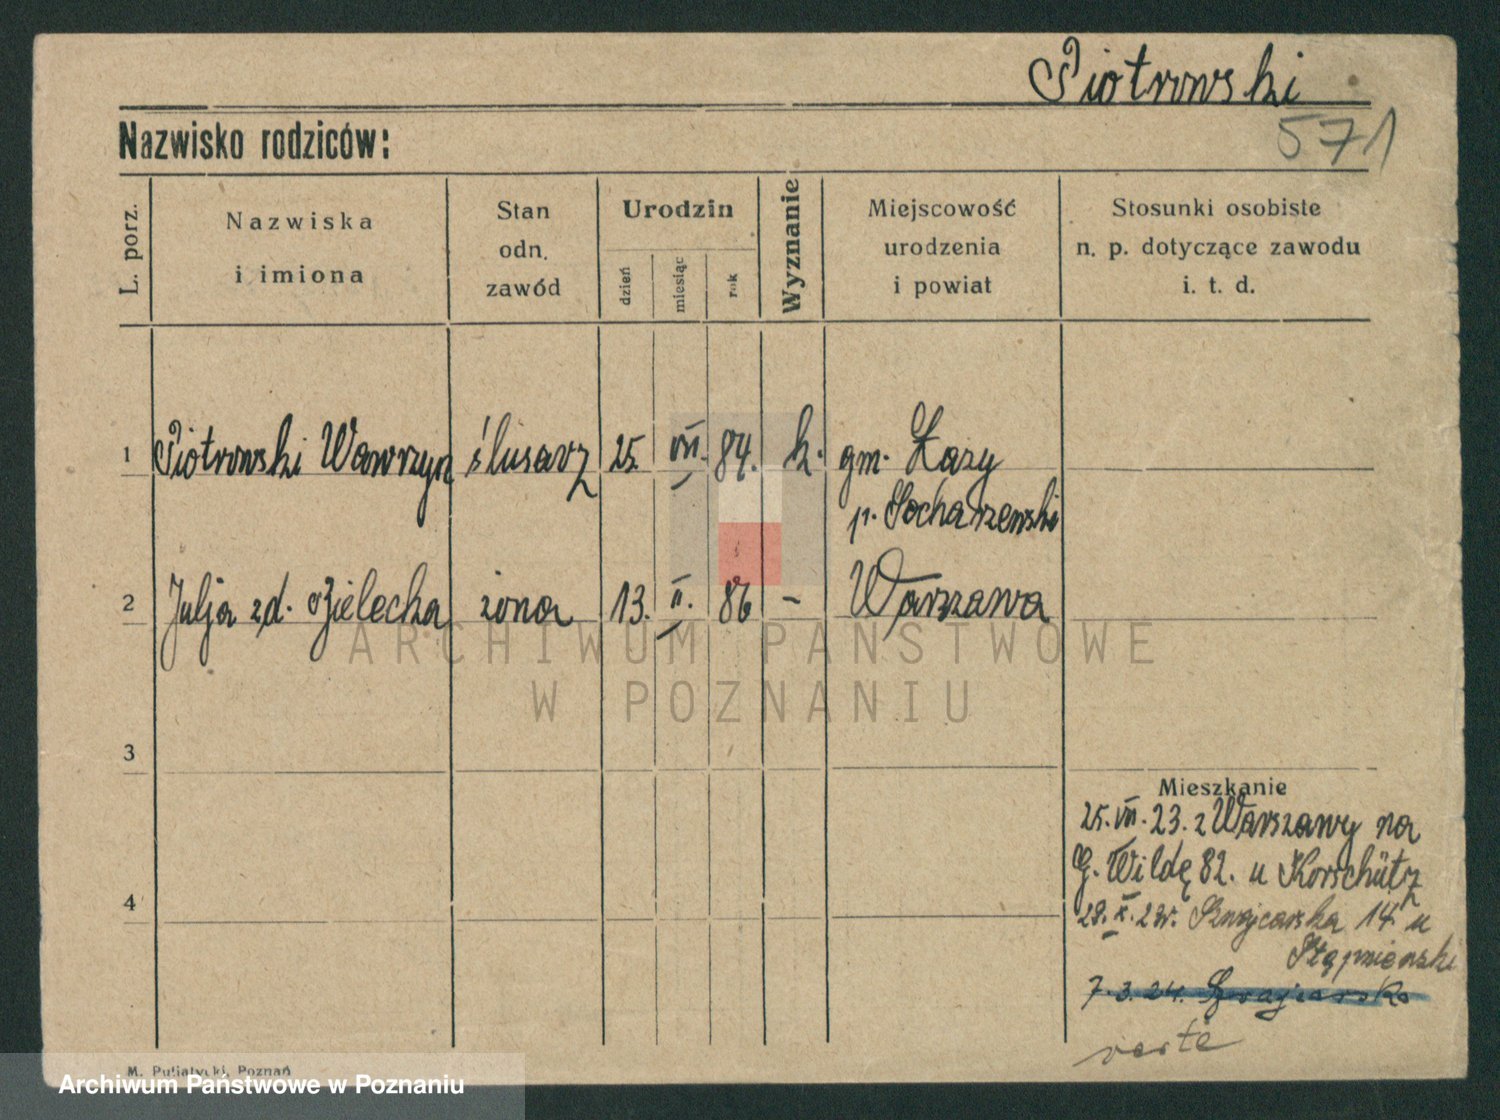 Piotrowski
571
Nazwisko rodziców:
L. porz.
Nazwiska
i imiona
Stan
odn.
zawód
Urodzin
dzień
miesiąc
rok
Wyznanie
Miejscowość
urodzenia
i powiat
Stosunki osobiste
n. p. dotyczące zawodu
i. t. d.
1 Piotrowski Wawrzyn ślusarz 25. VII. 84. k. gm. Łazy
p. Sochaczewski
2 Julja z d. Bielecka żona 13. II. 86 – Warszawa
ARCHIWUM PAŃSTWOWE
W POZNANIU
3
4
Mieszkanie
25. VII. 23. z Warszawy na
G. Wildę 82. u Korschütz
28. X. 23r. Szwajcarska 14 u
7.3.24. Szwajcarska
verte
M. Putiatycki, Poznań
Archiwum Państwowe w Poznaniu